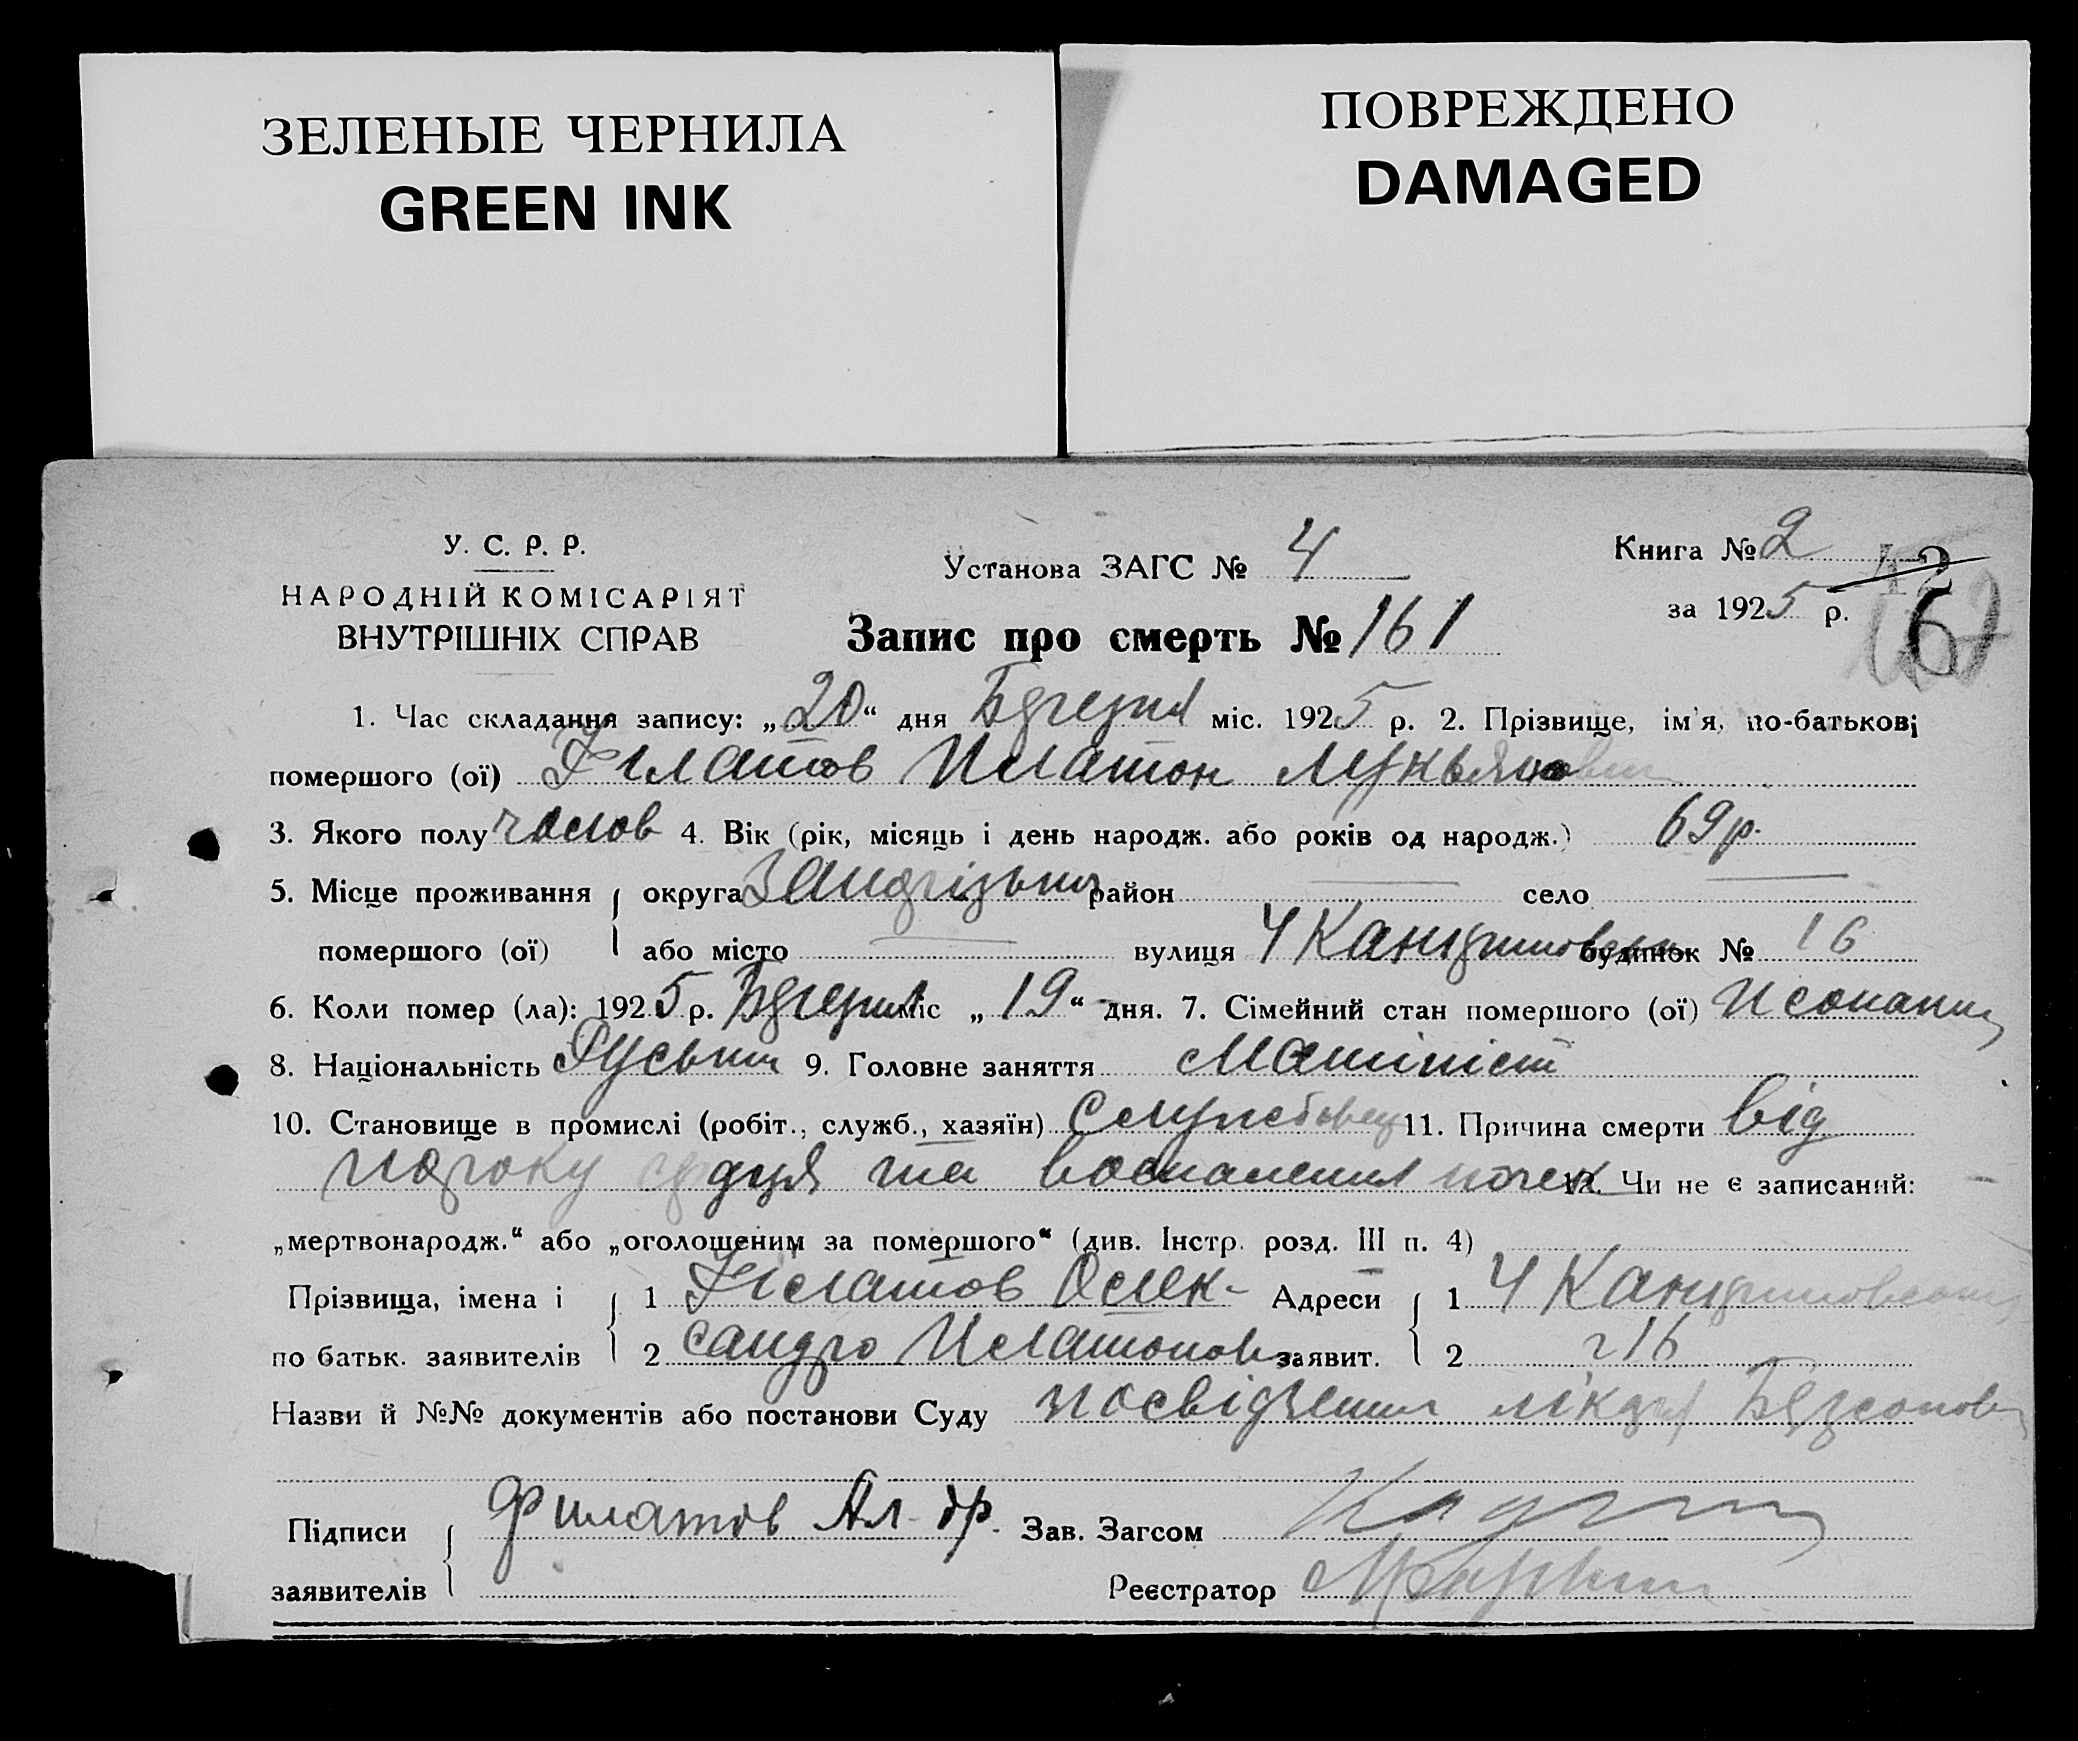 ЗЕЛЕНЫЕ ЧЕРНИЛА
GREEN INK
ПОВРЕЖДЕНО
DAMAGED
У. С. Р. Р.
НАРОДНІЙ КОМІСАРІЯТ
ВНУТРІШНІХ СПРАВ
Установа ЗАГС № 4
Запис про смерть № 161
Книга № 2
за 1925 р.
42
1. Час складання запису: „20“ дня Березня міс. 1925 р. 2. Прізвище, ім'я, по-батькові
помершого (ої) Філатов Платон Лукьянович
3. Якого полу чолов 4. Вік (рік, місяць і день народж. або років од народж.) 69 р.
5. Місце проживання округа район село
помершого (ої) або місто вулиця 4 будинок № 16
6. Коли помер (ла): 1925 р. Березня міс „19“ дня. 7. Сімейний стан помершого (ої)
8. Національність Руський 9. Головне заняття Машініст
10. Становище в промислі (робіт., служб., хазяїн) Службовець 11. Причина смерти від
пороку сердця та воспаления почек 12. Чи не є записаний:
„мертвонародж.“ або „оголошеним за помершого“ (див. Інстр. розд. III п. 4)
Прізвища, імена і 1 Філатов Олек- Адреси 1 4
по батьк. заявителів 2 сандро Платонов заявит. 2 16
Назви й №№ документів або постанови Суду посвідчення лікаря
Підписи Филатов Ал-др. Зав. Загсом
заявителів Реєстратор